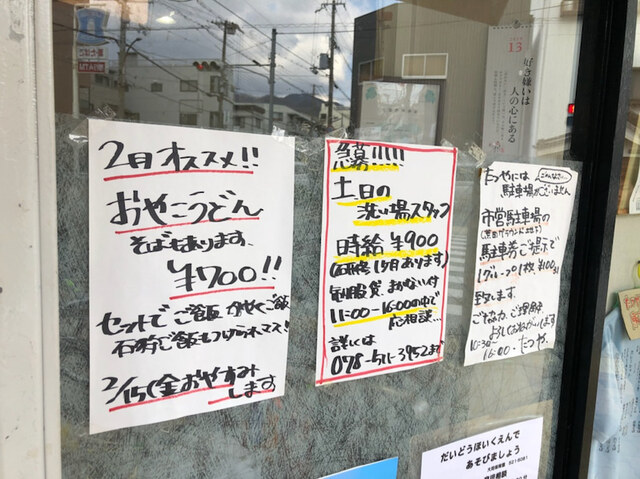 2月オススメ!!
おやこうどん
そばもあります、
¥700!!
セットでご飯 かやくご飯
石狩ご飯もつけられマス!
2/15(金)おやすみ
します
急募!!!!!
土日の
洗い場スタッフ
時給 ¥900
(研修1ヶ月あります)
制服貸、まかない付
11:00-16:00の中で
応相談...
詳しくは
078-511-3952まで
たつやには
ごめんなさい...
駐車場がございません
市営駐車場の
駐車券ご提示で
致します。
ご協力、ご理解
よろしくお願いします
10:30~
16:00. たつや.
13
好き嫌いは
人の心にある
だいどうほいくえんで
あそびましょう